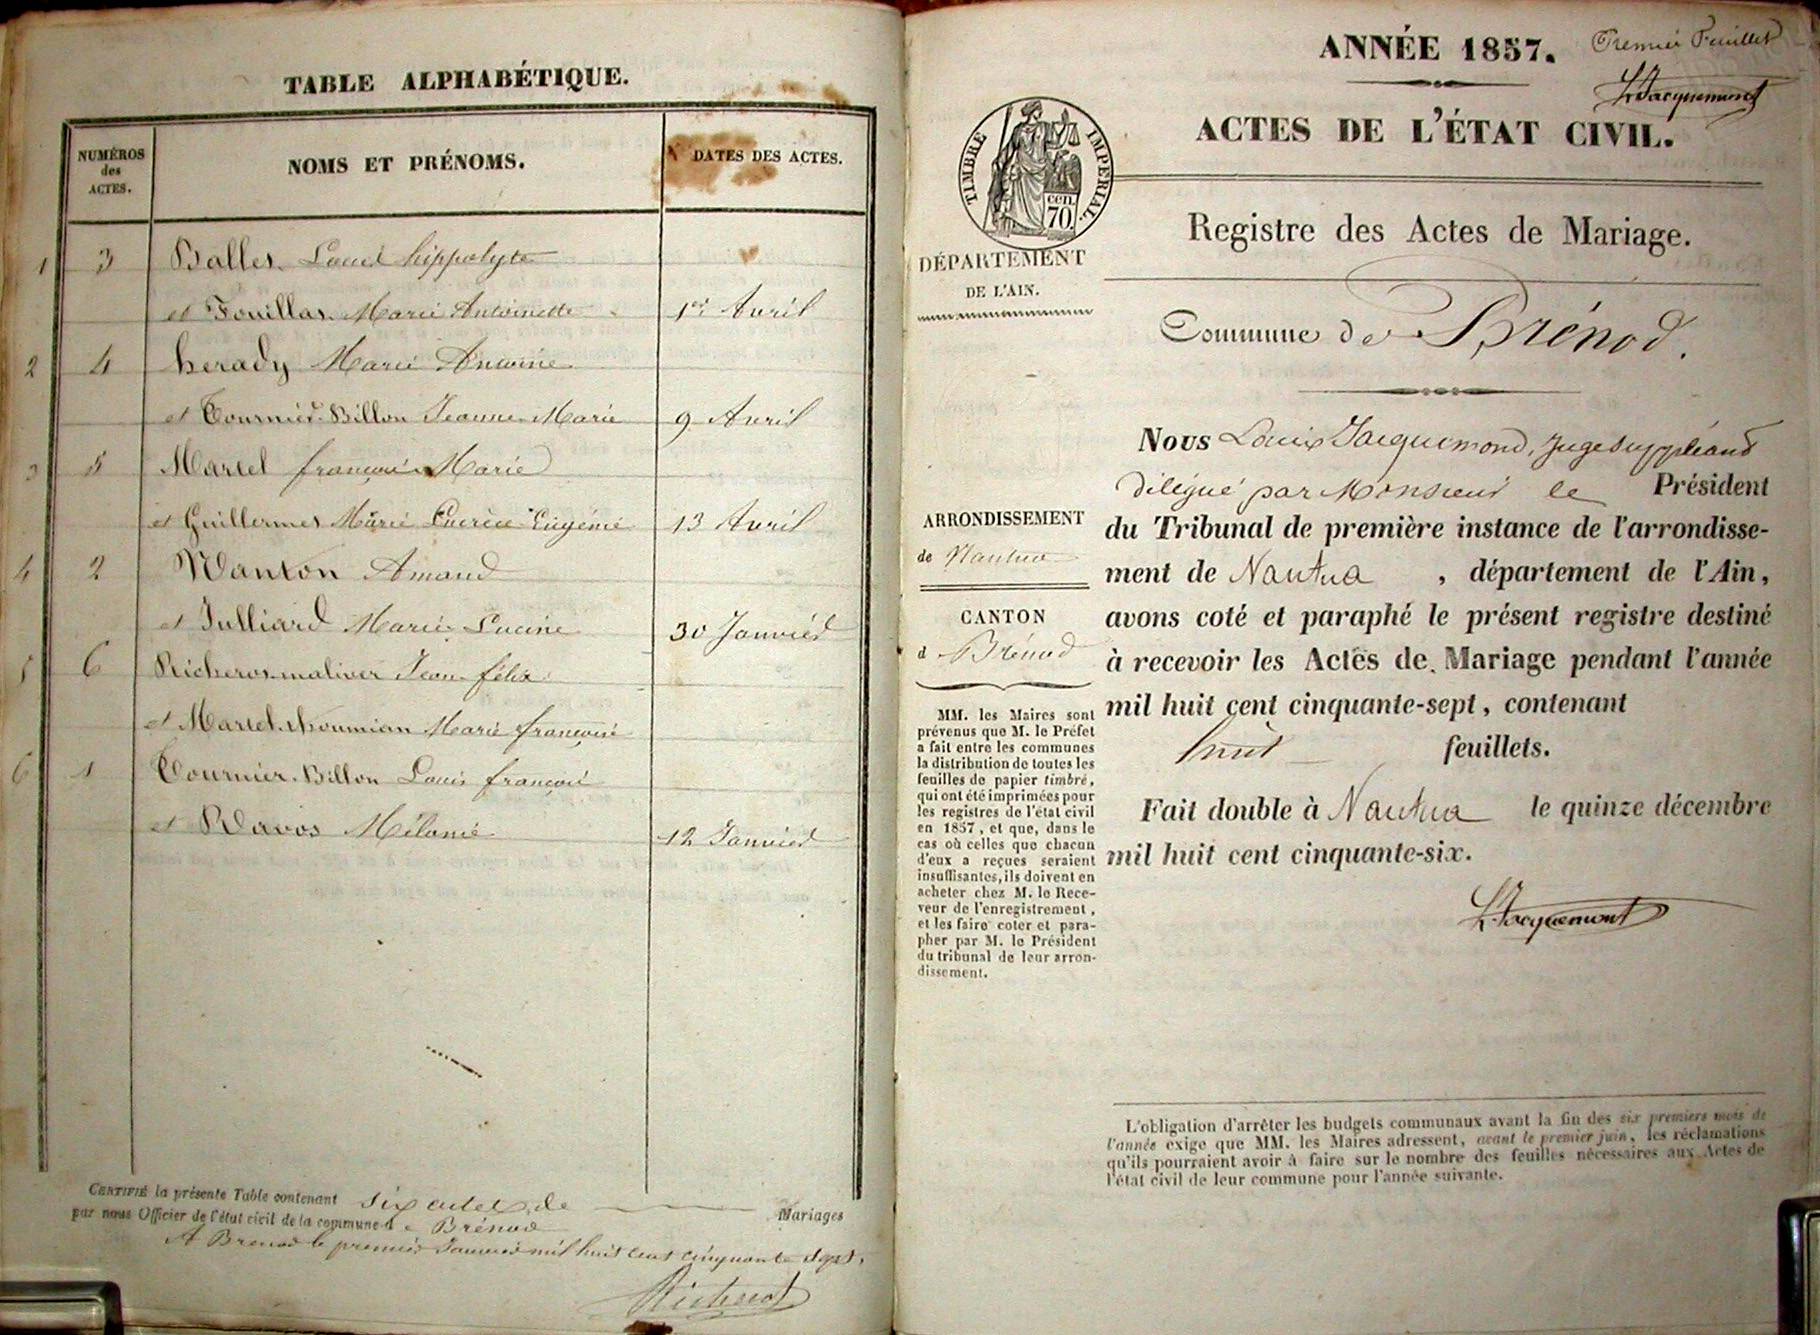 TABLE ALPHABÉTIQUE.
NUMÉROS
des
ACTES.
NOMS ET PRÉNOMS.
DATES DES ACTES.
1 3 Ballet Louis hippolyte
et Fouillas Marie Antoinette 1er Avril
2 4 herady Marie
et Tournier-Billon Jeanne Marie 9 Avril
3 5 Martel françois Marie
et Guillermet Marie Lucrèce Eugénie 13 Avril
4 2 Manton Amand
et Julliard Marie Lucine 30 Janvier
5 6 Richerot-maliver Jean félix
et Martel-choumian Marie françoise
6 1 Tournier-Billon Louis françois
et Ravos Mélanie 12 Janvier
CERTIFIÉ la présente Table contenant six actes de Mariages
par nous Officier de l'état civil de la commune d e Brénod
A Brénod le premier Janvier mil huit cent cinquante sept.
Richerot
Premier Feuillet
ANNÉE 1857.
L. Jacquemont
ACTES DE L'ÉTAT CIVIL.
TIMBRE IMPÉRIAL.
cen.
70.
Registre des Actes de Mariage.
DÉPARTEMENT
DE L'AIN.
Commune de Brénod.
ARRONDISSEMENT
de Nantua
CANTON
d Brénod
MM. les Maires sont
prévenus que M. le Préfet
a fait entre les communes
la distribution de toutes les
feuilles de papier timbré,
qui ont été imprimées pour
les registres de l'état civil
en 1857, et que, dans le
cas où celles que chacun
d'eux a reçues seraient
insuffisantes, ils doivent en
acheter chez M. le Rece-
veur de l'enregistrement,
et les faire coter et para-
pher par M. le Président
du tribunal de leur arron-
dissement.
Nous Louis Jacquemond, juge suppléant
délégué par Monsieur le Président
du Tribunal de première instance de l'arrondisse-
ment de Nantua, département de l'Ain,
avons coté et paraphé le présent registre destiné
à recevoir les Actes de Mariage pendant l'année
mil huit cent cinquante-sept, contenant
huit feuillets.
Fait double à Nantua le quinze décembre
mil huit cent cinquante-six.
L. Jacquemont
L'obligation d'arrêter les budgets communaux avant la fin des six premiers mois de
l'année exige que MM. les Maires adressent, avant le premier juin, les réclamations
qu'ils pourraient avoir à faire sur le nombre des feuilles nécessaires aux Actes de
l'état civil de leur commune pour l'année suivante.